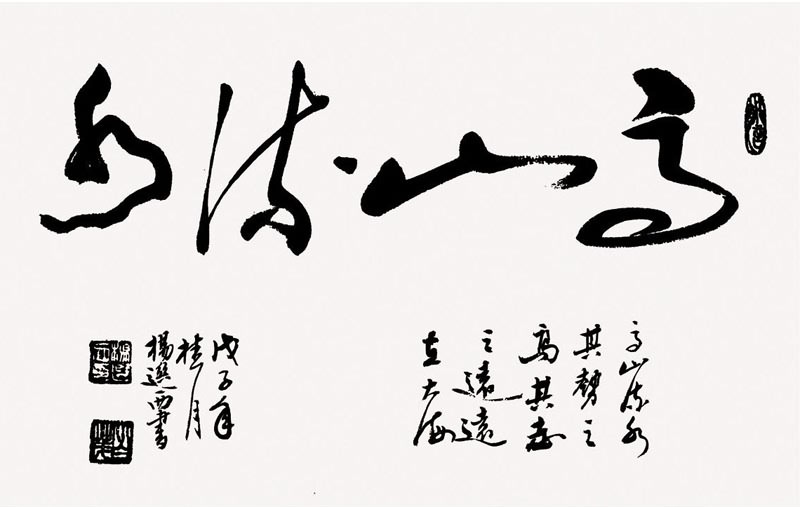 高山流水
高山流水
其勢之
高其志
之遠遠
在大海
戊子年
桂月
楊選西書